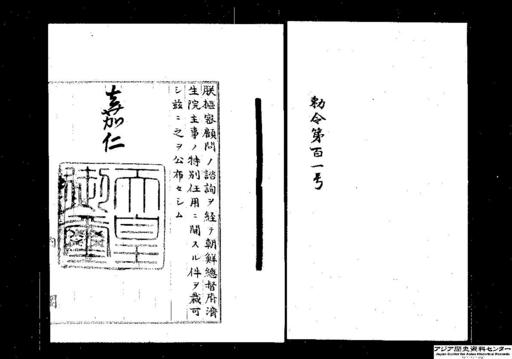 勅令第百一号
朕枢密顧問ノ諮詢ヲ経テ朝鮮総督府済
生院主事ノ特別任用ニ関スル件ヲ裁可
シ玆ニ之ヲ公布セシム
嘉仁
天皇
御璽
閣
アジア歴史資料センター
Japan Center for Asian Historical Records